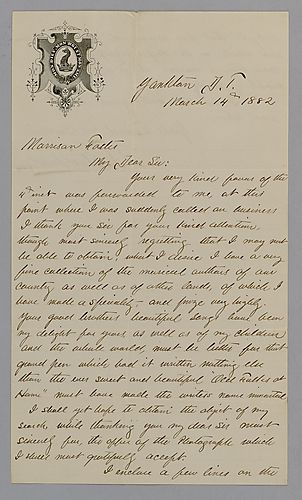 Yankton D.T.
March 14th 1882
Morrison Foster
My Dear Sir:
Your very kind favor of the
4th inst was forwarded to me, at this
point where I was suddenly called on business
I thank you Sir for your kind attention,
though most sincerely regretting that I may not
be able to obtain, what I desire. I have a very
fine collection of the musical authors of our
country as well as of other lands, of which I
have made a specialty, and prize very highly.
Your good brothers beautiful songs have been
my delight for years as well as of my children
and the whole world, must be better for that
grand pen which had it written nothing else
than the ever sweet and beautiful "Old Folks at
Home" must have made the writers name immortal
I shall yet hope to obtain the object of my
search, while thanking you my dear Sir most
sincerely for the offer of the Photograph which
I shall most gratefully accept.
I enclose a few lines on the